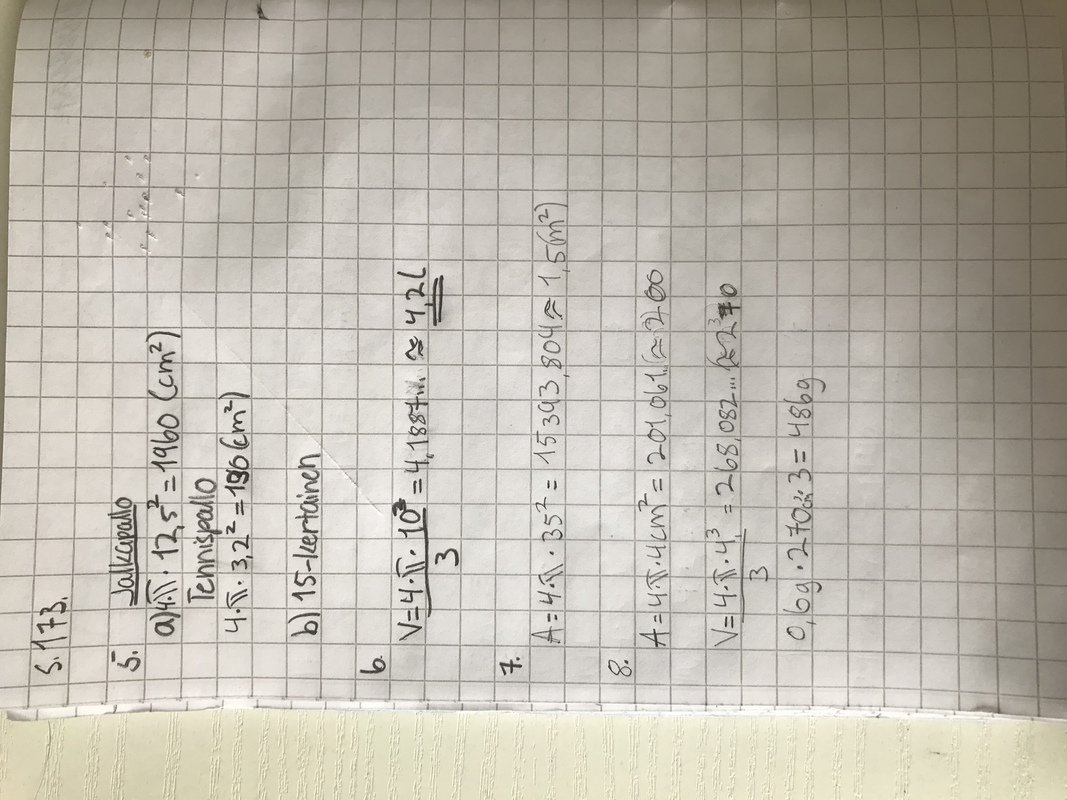 S. 173.
5. Jalkapallo
a) 4·π·12,5² = 1960 (cm²)
Tennispallo
4·π·3,2² = 130 (cm²)
b) 15-kertainen
6. V = 4·π·10³ = 4,1887... ≈ 4,2 l
3
7. A = 4·π·35² = 15393,804 ≈ 1,5 (m²)
8. A = 4·π·4cm² = 201,061.. (≈) 200
V = 4·π·4³ = 268,082... (≈ 270
3
0,6g · 270 · 3 = 486g